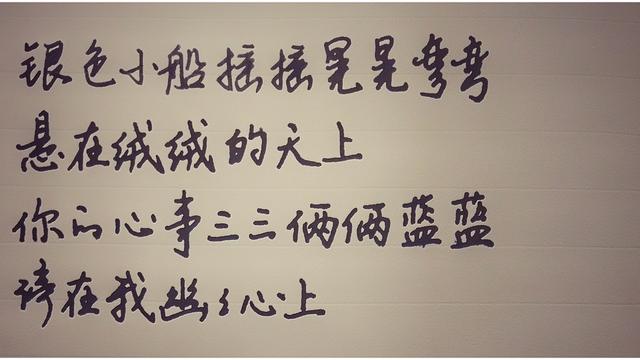 银色小船摇摇晃晃弯弯
悬在绒绒的天上
你的心事三三俩俩蓝蓝
停在我幽々心上